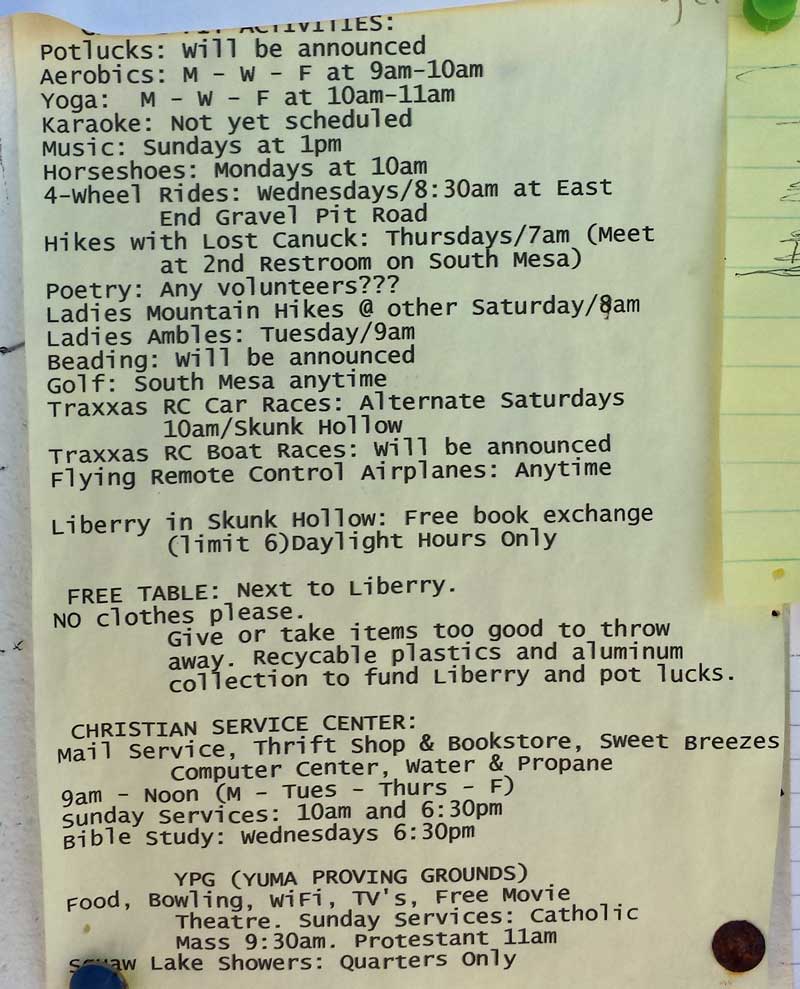 ACTIVITIES:
Potlucks: Will be announced
Aerobics: M - W - F at 9am-10am
Yoga: M - W - F at 10am-11am
Karaoke: Not yet scheduled
Music: Sundays at 1pm
Horseshoes: Mondays at 10am
4-Wheel Rides: Wednesdays/8:30am at East
End Gravel Pit Road
Hikes with Lost Canuck: Thursdays/7am (Meet
at 2nd Restroom on South Mesa)
Poetry: Any volunteers???
Ladies Mountain Hikes @ other Saturday/8am
Ladies Ambles: Tuesday/9am
Beading: Will be announced
Golf: South Mesa anytime
Traxxas RC Car Races: Alternate Saturdays
10am/Skunk Hollow
Traxxas RC Boat Races: Will be announced
Flying Remote Control Airplanes: Anytime
Liberry in Skunk Hollow: Free book exchange
(limit 6)Daylight Hours Only
FREE TABLE: Next to Liberry.
NO clothes please.
Give or take items too good to throw
away. Recycable plastics and aluminum
collection to fund Liberry and pot lucks.
CHRISTIAN SERVICE CENTER:
Mail Service, Thrift Shop & Bookstore, Sweet Breezes
Computer Center, Water & Propane
9am - Noon (M - Tues - Thurs - F)
Sunday Services: 10am and 6:30pm
Bible Study: Wednesdays 6:30pm
YPG (YUMA PROVING GROUNDS)
Food, Bowling, WiFi, TV's, Free Movie
Theatre. Sunday Services: Catholic
Mass 9:30am. Protestant 11am
Squaw Lake Showers: Quarters Only